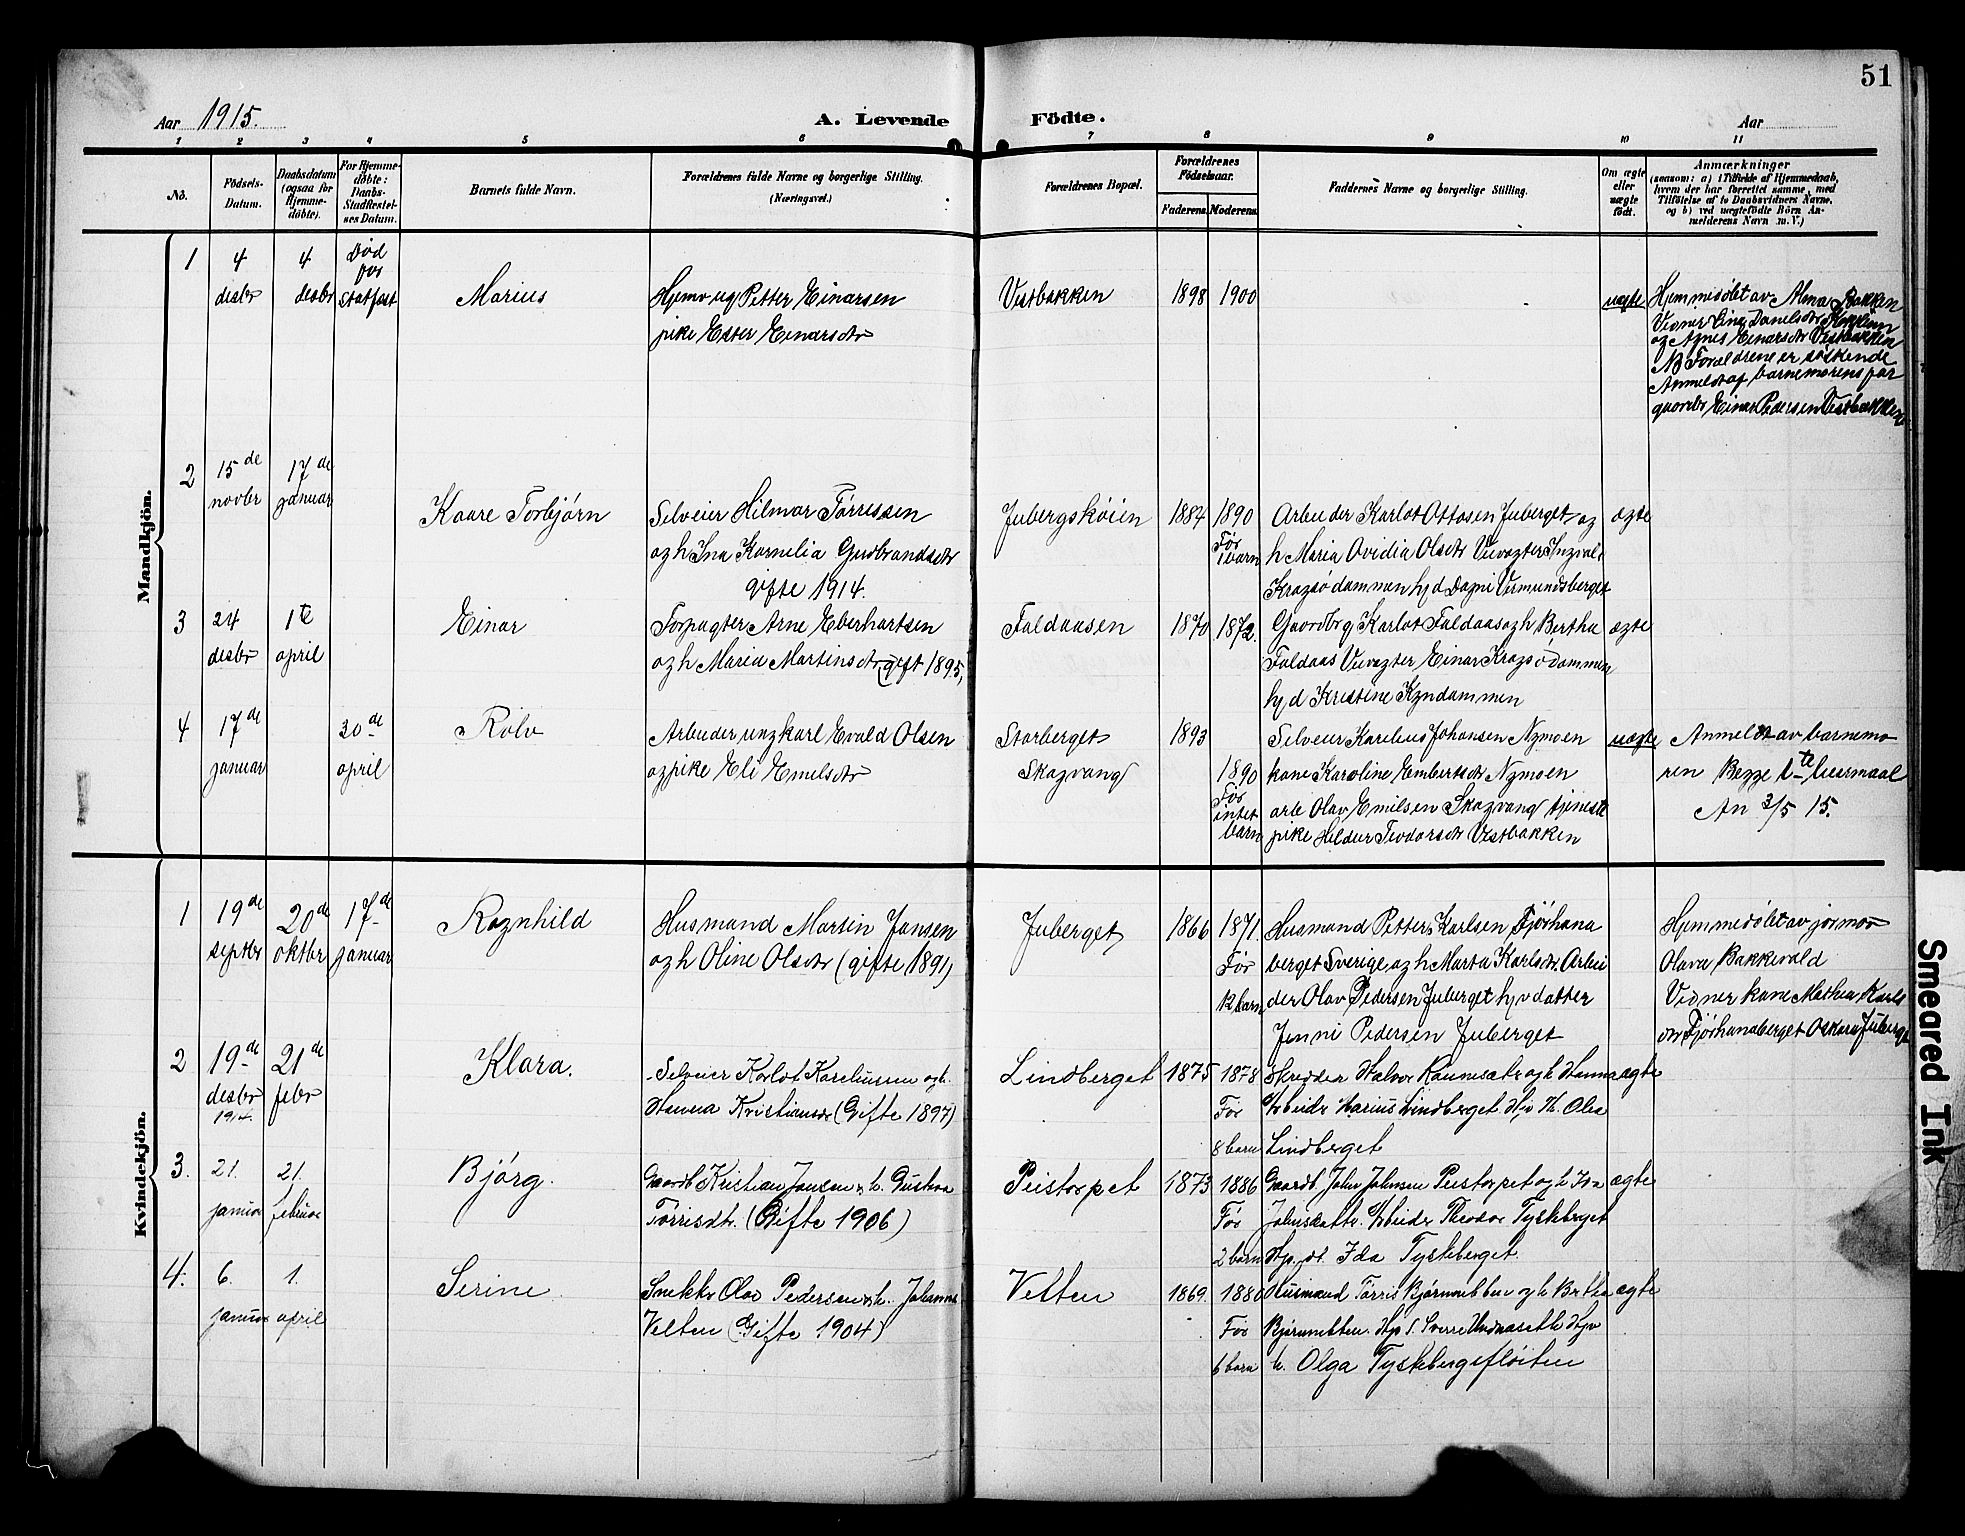 51
Aar 1915.
A. Levende Födte.
Aar
1 2 3 4 5 6 7 8 9 10 11
No.
Födsels-Datum.
Daabsdatum (ogsaa for Hjemme-döbte).
For Hjemme-döbte: Daabs-Stadfæstel-ses Datum.
Barnets fulde Navn.
Forældrenes fulde Navne og borgerlige Stilling.
(Næringsvei.)
Forældrenes Bopæl.
Forældrenes Födselsaar.
Faderens. Moderens.
Faddernes Navne og borgerlige Stilling.
Om ægte eller uægte födt.
Anmærkninger
(saasom: a) i Tilfælde af Hjemmedaab,
hvem der har forrettet samme, med
Tilföielse af to Daabsvidners Navne,
og b) ved uægtefödte Börn An-
melderens Navn m. V.)
Mandkjön.
1
4 desbr
4 desbr
Død før statfæst
Marius
Hjemv ug Petter Einarsen
pike Ester Einarsdtr
Vestbakken
1898 1900
uægte
Hjemmedøbt av Alma Bakken
Vidner Danielsdtr
og Agnes Einarsdtr Vestbakken
NB Foraldrene er søskende
Anmeldt af barnemorens far
gaardbr Einar Pedersen Vestbakken
2
15de novbr
17de januar
Kaare Torbjørn
Selveier Hilmar Tørrissen
og h Ina Kornelia Gudbrandsdtr
gifte 1914.
Jubergskøien
1884 1890
Før 1 barn
Arbeider Karlot Ottosen Juberget og
h Maria Ovidia Olsdtr Ungkarl Ingvald
Kragsødammen hjd Dagni Vermundsberget
ægte
3
24 desbr
1te april
Einar
Forpagter Arne Eberhartsen
og h Maria Martinsdtr (gift 1895)
Faldaasen
1870 1872.
Gaardbrg Karlot Faldaas og h Bertha
Faldaas Einar Kragsødammen
hjd Kristine Kyndammen
ægte
4
17de januar
30de april
Rolv
Arbeider ungkarl Evald Olsen
og pike Eli Emelsdtr
Storberget
Skogvang
1893
1890
Før intet barn
Selveier Karelius Johansen Nymoen
kone Karoline Embertsdtr Nymoen
arb Olav Emilsen Skogvang tjeneste
pike Helder Teodorsdtr Vestbakken
uægte
Anmeldt av barnemo
ren Begge 1te leiermaal
An 3/5 15.
Kvindekjön.
1
19de septbr
20de oktbr
17de januar
Ragnhild
Husmand Martin Jansen
og h Oline Olsdtr (gifte 1891)
Juberget
1866 1871.
Før 12 barn
Husmand Petter Karlsen Fjørhana
berget Sverige og h Marta Karlsdtr. Arbei
der Olav Pedersen Juberget hjv datter
Jenni Pedersen Juberget
Hjemmedøbt av jormor
Olava Bakkevold
Vidner kone Mathea Karls
dtr Fjørhanaberget Oskara Juberget
2
19de desbr 1914.
21de febr
Klara.
Selveier Karlot Kareliussen og h.
Hanna Kristiansdtr (Gifte 1897)
Lindberget
1875 1878
Før 8 barn
Skredder Halvor Raunesætr og h Hanna
Arbeider Marius Lindberget. Hjv H. Olea
Lindberget
ægte
3.
21. januar
21. februar
Bjørg.
Gaardb Kristian Jansen & h. Gustava
Tørrisdtr. (Gifte 1906)
Peistorpet
1873 1886
Før 2 barn
Gaardb. John Johnsen Peistorpet og h Ida
Johnsdattr. Arbeider Theodor Tyskeberget
Hjv. dt. Ida Tyskeberget.
ægte
4.
6. januar
1. april
Serine.
Snekker Olav Pedersen & h. Johanna
Velten (Gifte 1904)
Velten
1869. 1880
Før 6 barn
Husmand Tørris Bjørnebben og h Bertha
Bjørnebben. Hjv S. Sverre Undnaseth Hjv
h. Olga Tyskebergsfløiten
ægte
Smeared Ink